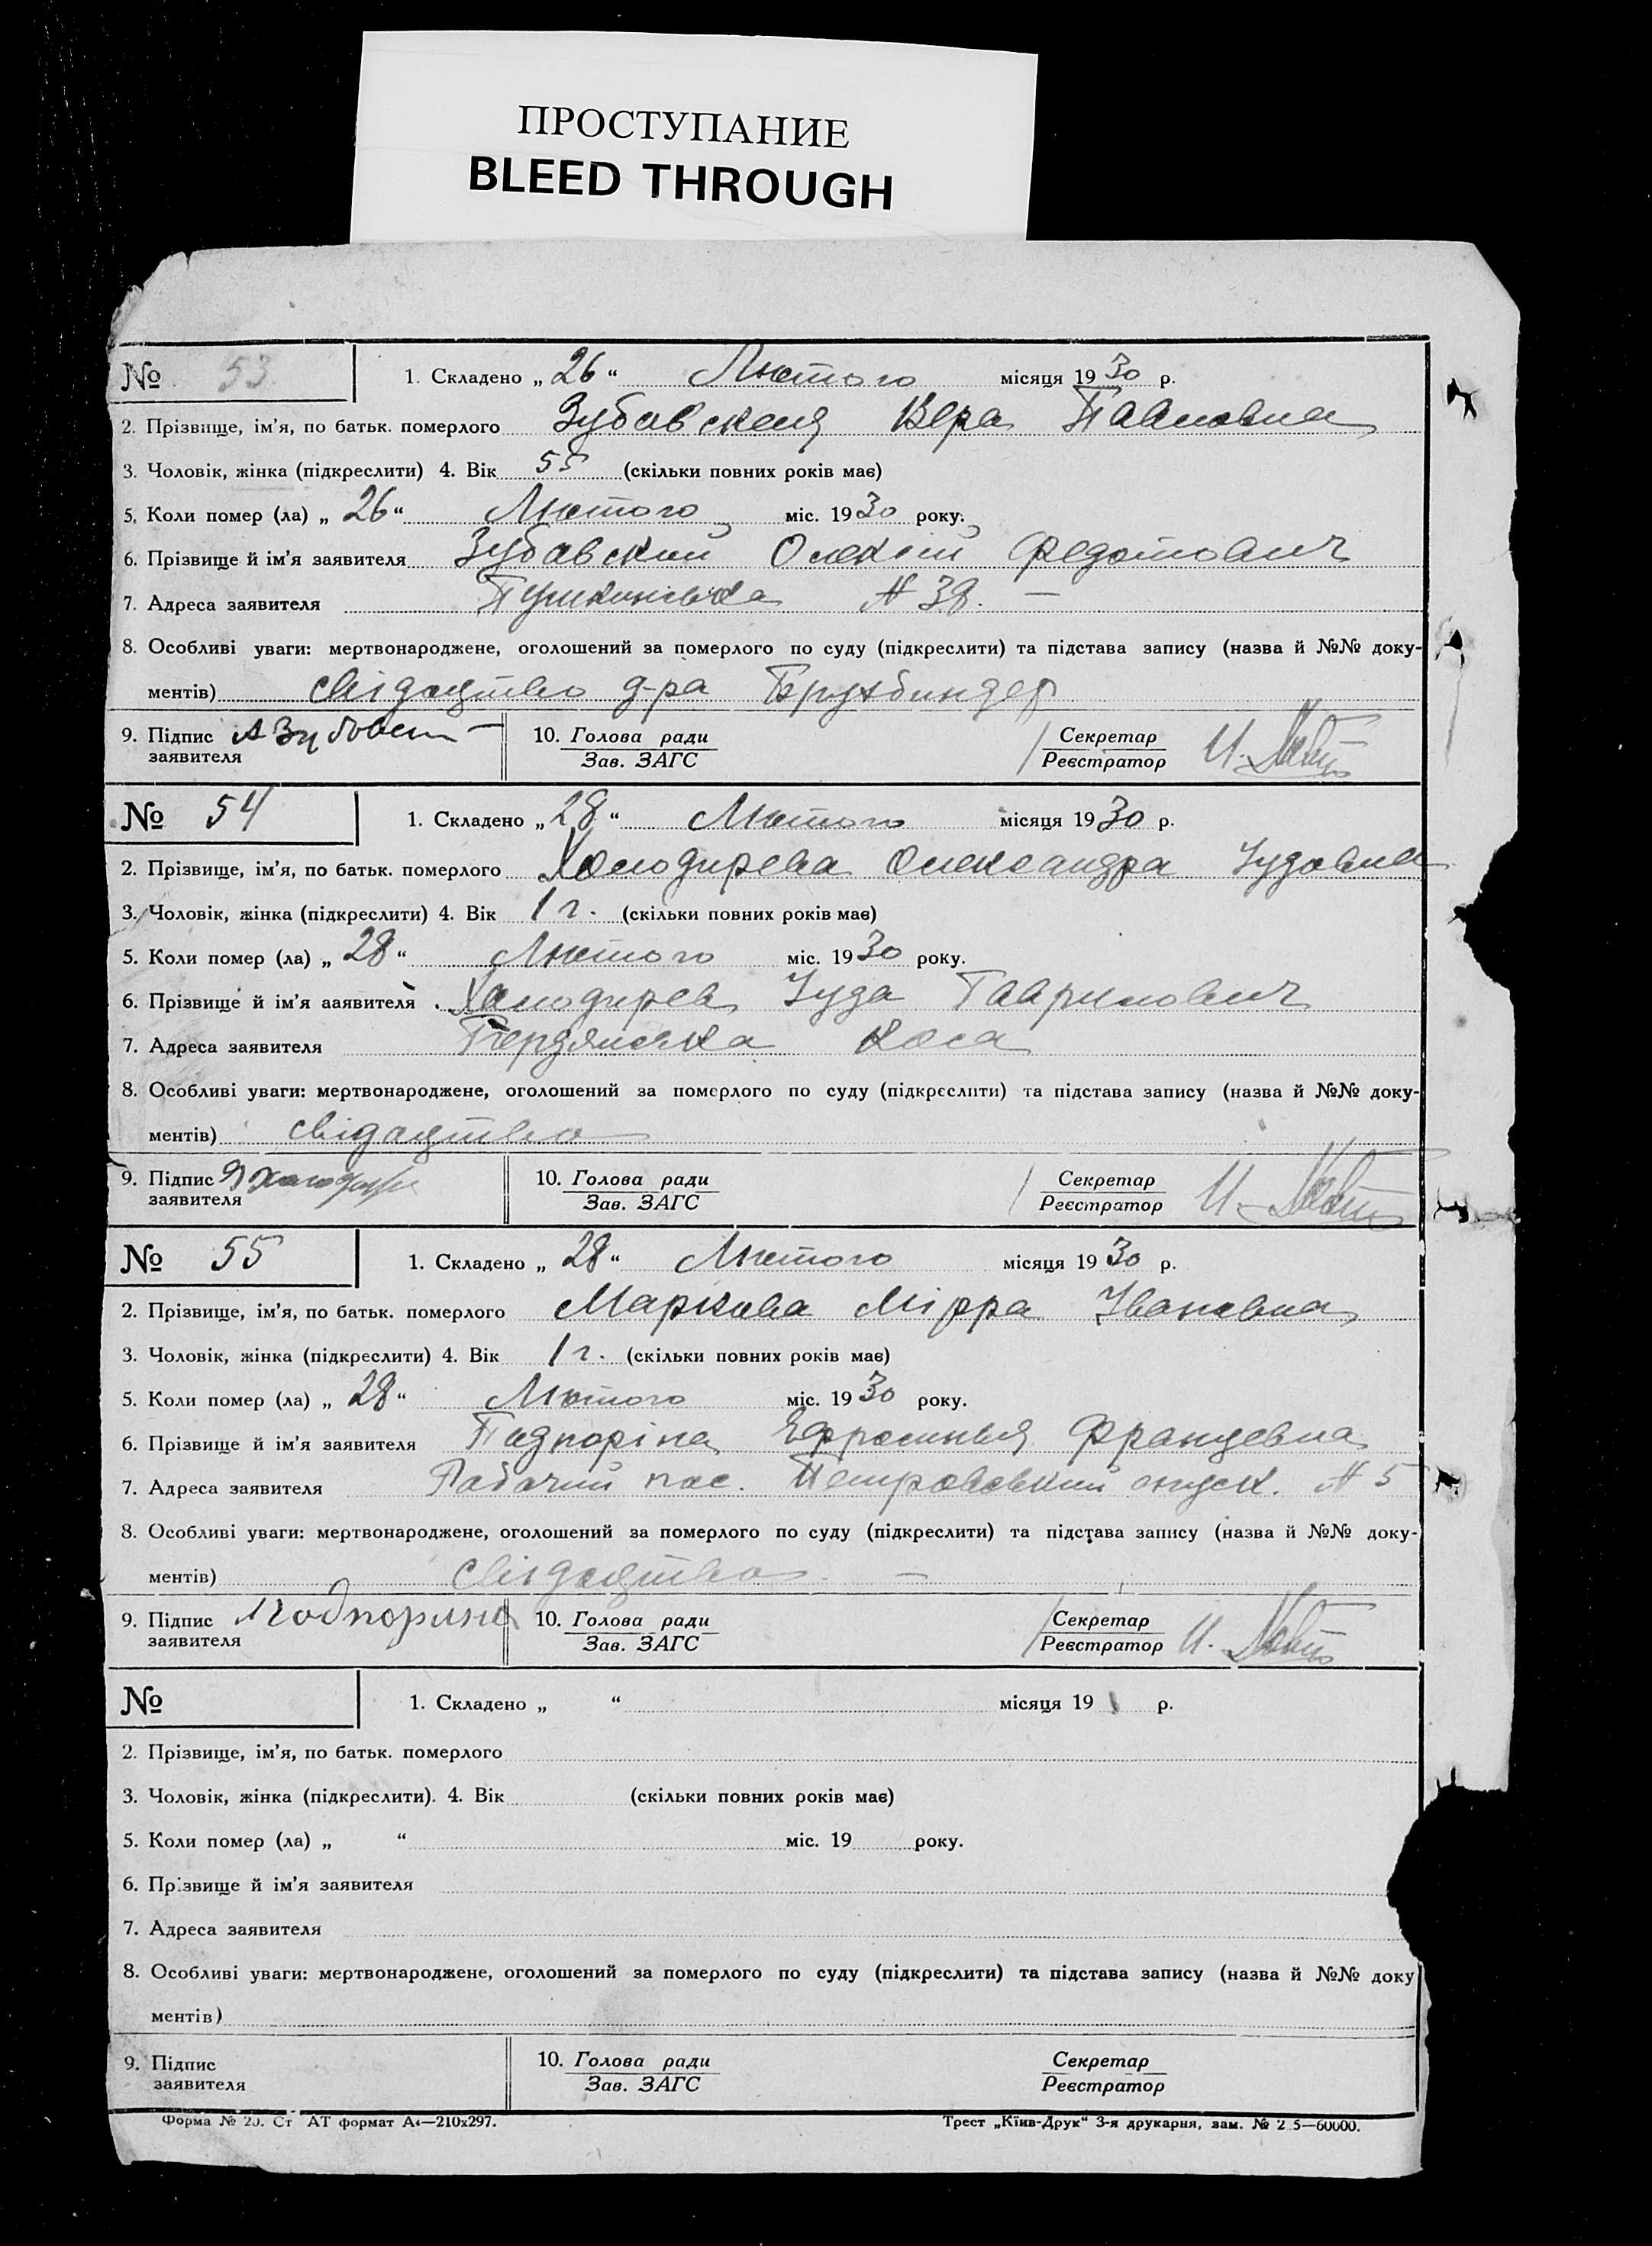 ПРОСТУПАНИЕ
BLEED THROUGH
№ 53 1. Складено „ 26 “ Лютого місяця 19 30 р.
2. Прізвище, ім’я, по батьк. померлого Зубавская Вера Павловна
3. Чоловік, жінка (підкреслити) 4. Вік 55 (скільки повних років має)
5. Коли помер (ла) „ 26 “ Лютого міс. 19 30 року.
6. Прізвище й ім’я заявителя Зубавский Олексій Федотович
7. Адреса заявителя Пушкинська № 38. —
8. Особливі уваги: мертвонароджене, оголошений за померлого по суду (підкреслити) та підстава запису (назва й №№ доку-
ментів) свідоцтво д-ра Брухбиндер
9. Підпис А Зубовск 10. Голова ради Секретар И.
заявителя Зав. ЗАГС Реєстратор
№ 54 1. Складено „ 28 “ Лютого місяця 19 30 р.
2. Прізвище, ім’я, по батьк. померлого Холодирева Олександра Іудовна
3. Чоловік, жінка (підкреслити) 4. Вік 1 г. (скільки повних років має)
5. Коли помер (ла) „ 28 “ Лютого міс. 19 30 року.
6. Прізвище й ім’я заявителя Холодирев Іуда Гаврилович
7. Адреса заявителя Бердянська коса
8. Особливі уваги: мертвонароджене, оголошений за померлого по суду (підкреслити) та підстава запису (назва й №№ доку-
ментів) свідоцтво
9. Підпис 10. Голова ради Секретар И.
заявителя Зав. ЗАГС Реєстратор
№ 55 1. Складено „ 28 “ Лютого місяця 19 30 р.
2. Прізвище, ім’я, по батьк. померлого Маркова Мірра Івановна
3. Чоловік, жінка (підкреслити) 4. Вік 1 г. (скільки повних років має)
5. Коли помер (ла) „ 28 “ Лютого міс. 19 30 року.
6. Прізвище й ім’я заявителя Падпоріна Ефросинья Францевна
7. Адреса заявителя Рабочий пос. Петровський спуск. № 5
8. Особливі уваги: мертвонароджене, оголошений за померлого по суду (підкреслити) та підстава запису (назва й №№ доку-
ментів) свідоцтво —
9. Підпис Подпорина 10. Голова ради Секретар И.
заявителя Зав. ЗАГС Реєстратор
№ 1. Складено „ “ місяця 19 р.
2. Прізвище, ім’я, по батьк. померлого
3. Чоловік, жінка (підкреслити). 4. Вік (скільки повних років має)
5. Коли помер (ла) „ “ міс. 19 року.
6. Прізвище й ім’я заявителя
7. Адреса заявителя
8. Особливі уваги: мертвонароджене, оголошений за померлого по суду (підкреслити) та підстава запису (назва й №№ доку
ментів)
9. Підпис 10. Голова ради Секретар
заявителя Зав. ЗАГС Реєстратор
Форма № 20. Ст АТ формат А4—210x297. Трест „Київ-Друк“ 3-я друкарня, зам. № 2 5—60000.